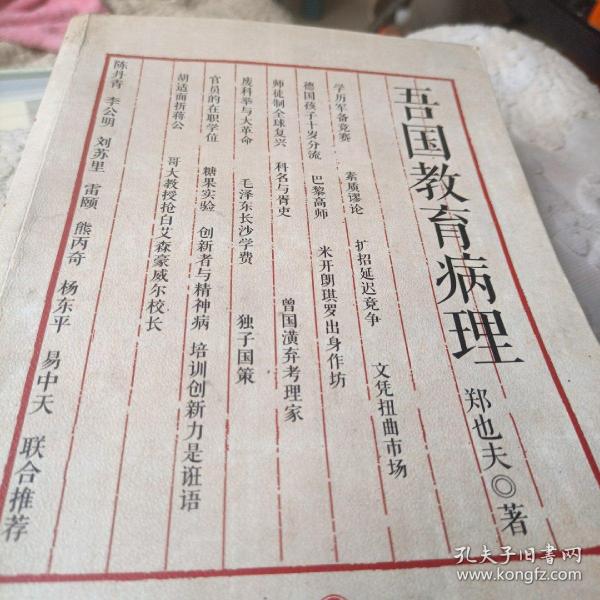 吾国教育病理
郑也夫◎著
学历军备竞赛 素质谬论 扩招延迟竞争 文凭扭曲市场
德国孩子十岁分流 巴黎高师 米开朗琪罗出身作坊
师徒制全球复兴 科名与胥吏 曾国潢弃考理家
废科举与大革命 毛泽东长沙学费 独子国策
官员的在职学位 糖果实验 创新者与精神病 培训创新力是诳语
胡适面折蒋公 哥大教授抢白艾森豪威尔校长
陈丹青 李公明 刘苏里 雷颐 熊丙奇 杨东平 易中天 联合推荐
孔夫子旧书网
www.kongfz.com